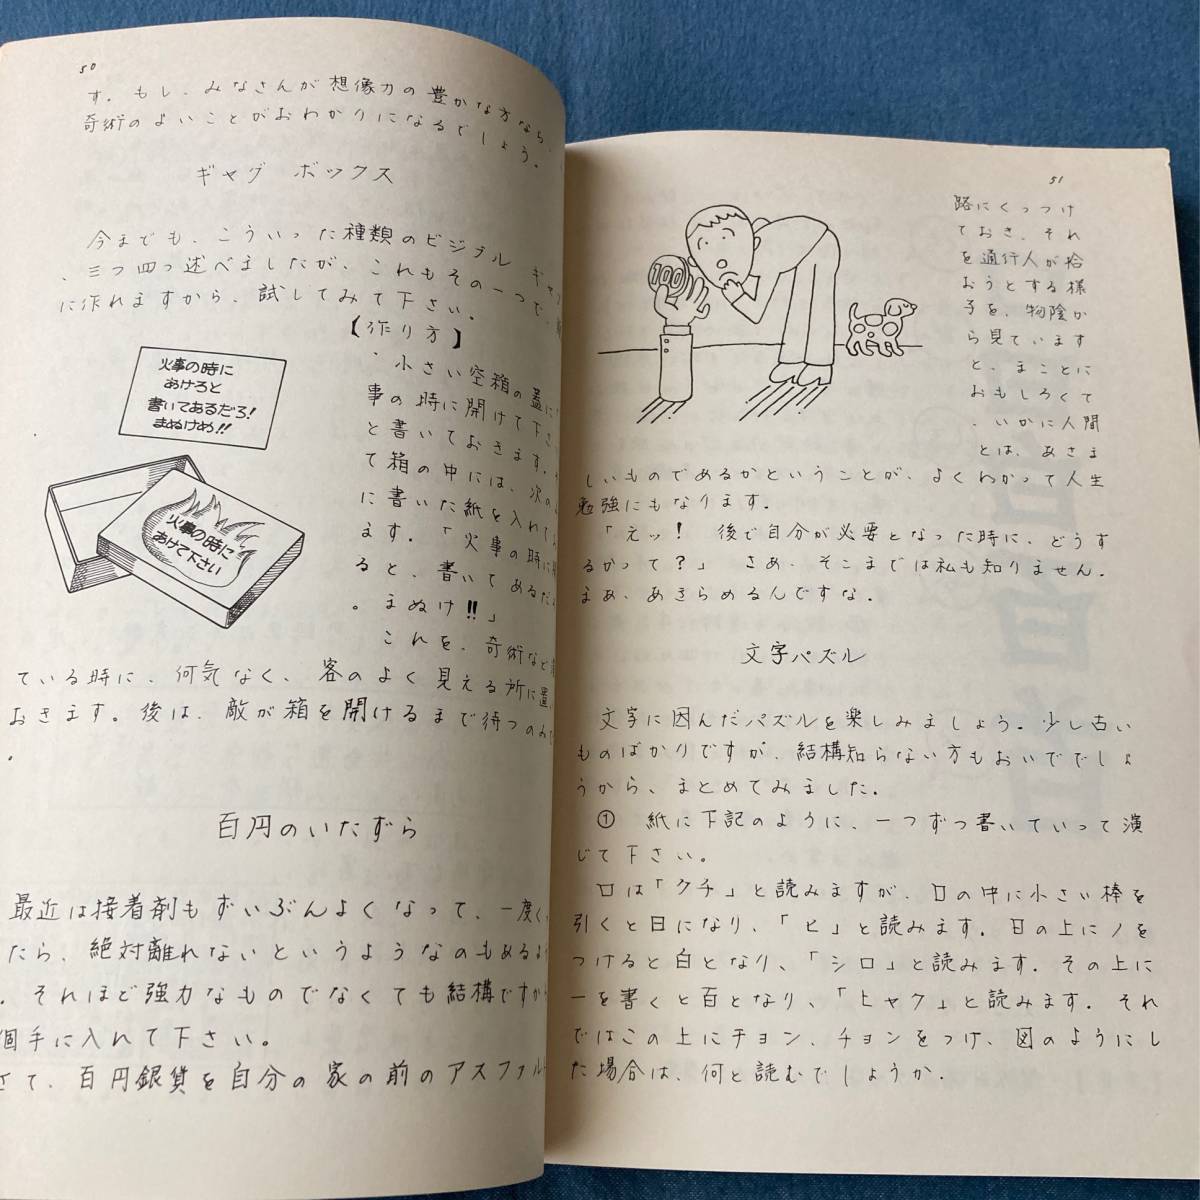 50
す。もし、みなさんが想像力の豊かな方なら、
奇術のよいことがおわかりになるでしょう。
ギャグ ボックス
今までも、こういった種類のビジブル ギャ
、三つ四つ述べましたが、これもその一つで、
に作れますから、試してみて下さい。
【作り方】
小さい空箱の蓋に
事の時に開けて下さ
と書いておきます。
て箱の中には、次の
に書いた紙を入れて
ます。「火事の時に
ると、書いてあるだ
。まぬけ!!」
これを、奇術など
ている時に、何気なく、客のよく見える所に置
おきます。後は、敵が箱を開けるまで待つのみ
。
火事の時に
あけろと
書いてあるだろ!
まぬけめ!!
火事の時に
あけて下さい
百円のいたずら
最近は接着剤もずいぶんよくなって、一度く
たら、絶対離れないというようなのもあるよ
。それほど強力なものでなくても結構ですから
個手に入れて下さい。
さて、百円銀貨を自分の家の前のアスファルト
51
100
路にくっつけ
ておき、それ
を通行人が拾
おうとする様
子を、物陰か
ら見ています
と、まことに
おもしろくて
、いかに人間
とは、あさま
しいものであるかということが、よくわかって人生
勉強にもなります。
「えッ! 後で自分が必要となった時に、どうす
るかって?」 さあ、そこまでは私も知りません。
まあ、あきらめるんですな。
文字パズル
文字に因んだパズルを楽しみましょう。少し古い
ものばかりですが、結構知らない方もおいででしょ
うから、まとめてみました。
① 紙に下記のように、一つずつ書いていって演
じて下さい。
口は「クチ」と読みますが、口の中に小さい棒を
引くと日になり、「ヒ」と読みます。日の上にノを
つけると白となり、「シロ」と読みます。その上に
一を書くと百となり、「ヒャク」と読みます。それ
ではこの上にチョン、チョンをつけ、図のようにし
た場合は、何と読むでしょうか。